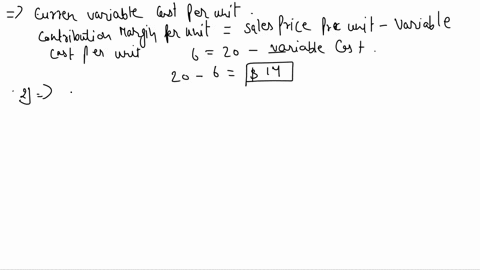 => Curren variable cost per unit.
Contribution Margin per unit = sales price per unit - variable
cost per unit 6 = 20 - variable cost.
20 - 6 = $ 14
2) =>